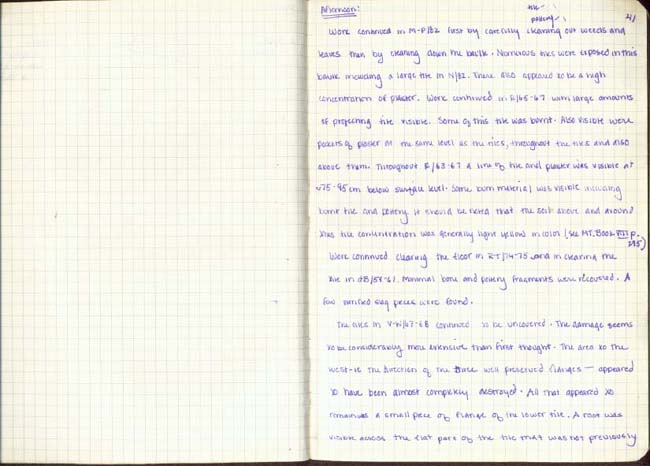 Afternoon:
tile - 1
pottery - 1
41
Work continued in M-P/82 first by carefully cleaning out weeds and
leaves then by cleaning down the baulk. Numerous tiles were exposed in this
baulk including a large tile in N/82. There also appeared to be a high
concentration of plaster. Work continued in E/65-67 with large amounts
of projecting tile visible. Some of this tile was burnt. Also visible were
pockets of plaster at the same level as the tiles, throughout the tiles and also
above them. Throughout E/63-67 a line of tile and plaster was visible at
75-95 cm below surface level. Some burn material was visible including
burnt tile and pottery. It should be noted that the soil above and around
this tile concentration was generally light yellow in color (see MT. Book VIII p.
295)
Work continued clearing the floor in R-T/74-75 and in clearing the
in dB/58-61. Minimal bone and pottery fragments were recovered. A
few vitrified slag pieces were found.
The tiles in V-W/67-68 continued to be uncovered. The damage seems
to be considerably more extensive than first thought. The area to the
west-ie the direction of the three well preserved flanges — appeared
to have been almost completely destroyed. All that appeared to
remain was a small piece of flange of the lower tile. A root was
visible across the flat part of the tile that was not previously